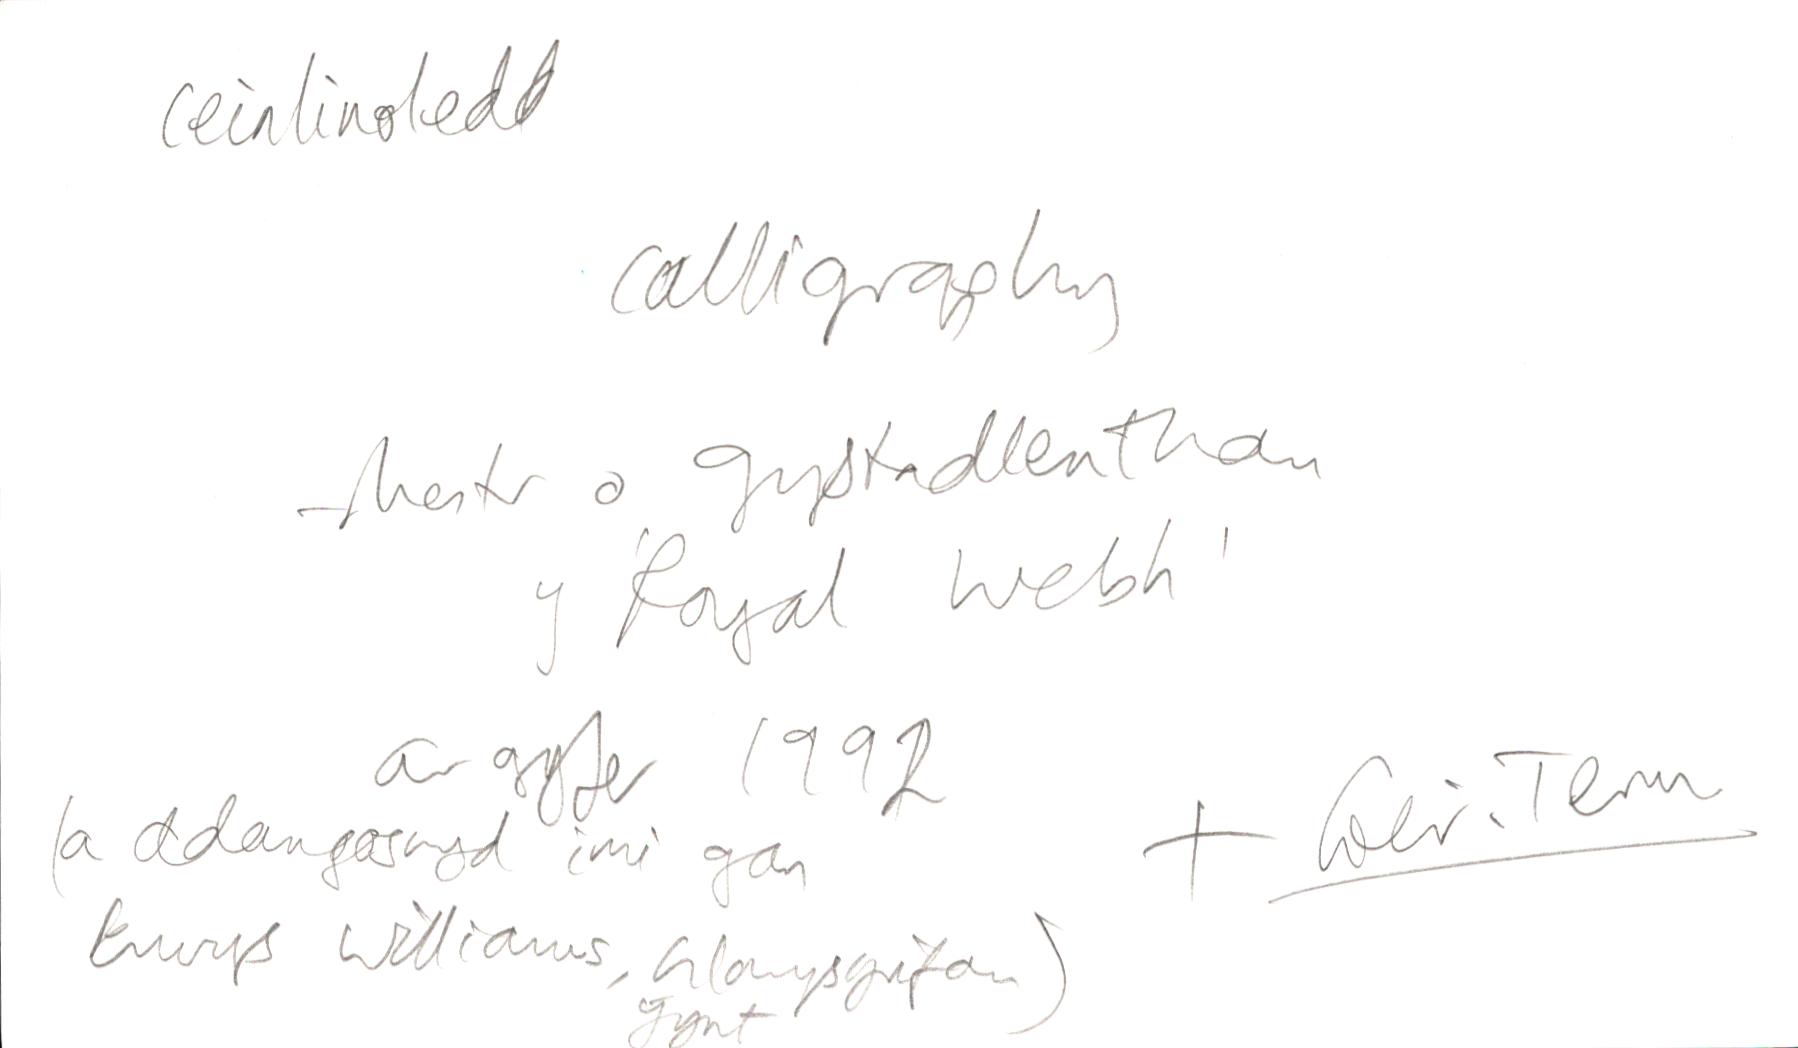 ceinlinoledd
calligraphy
- rhestr o gystadlenthau
y 'Royal Welsh'
ar gyfer 1992
(a ddangoswyd imi gan
+ Geir. Term
Emrys Williams, Glanysgrifan)
gynt